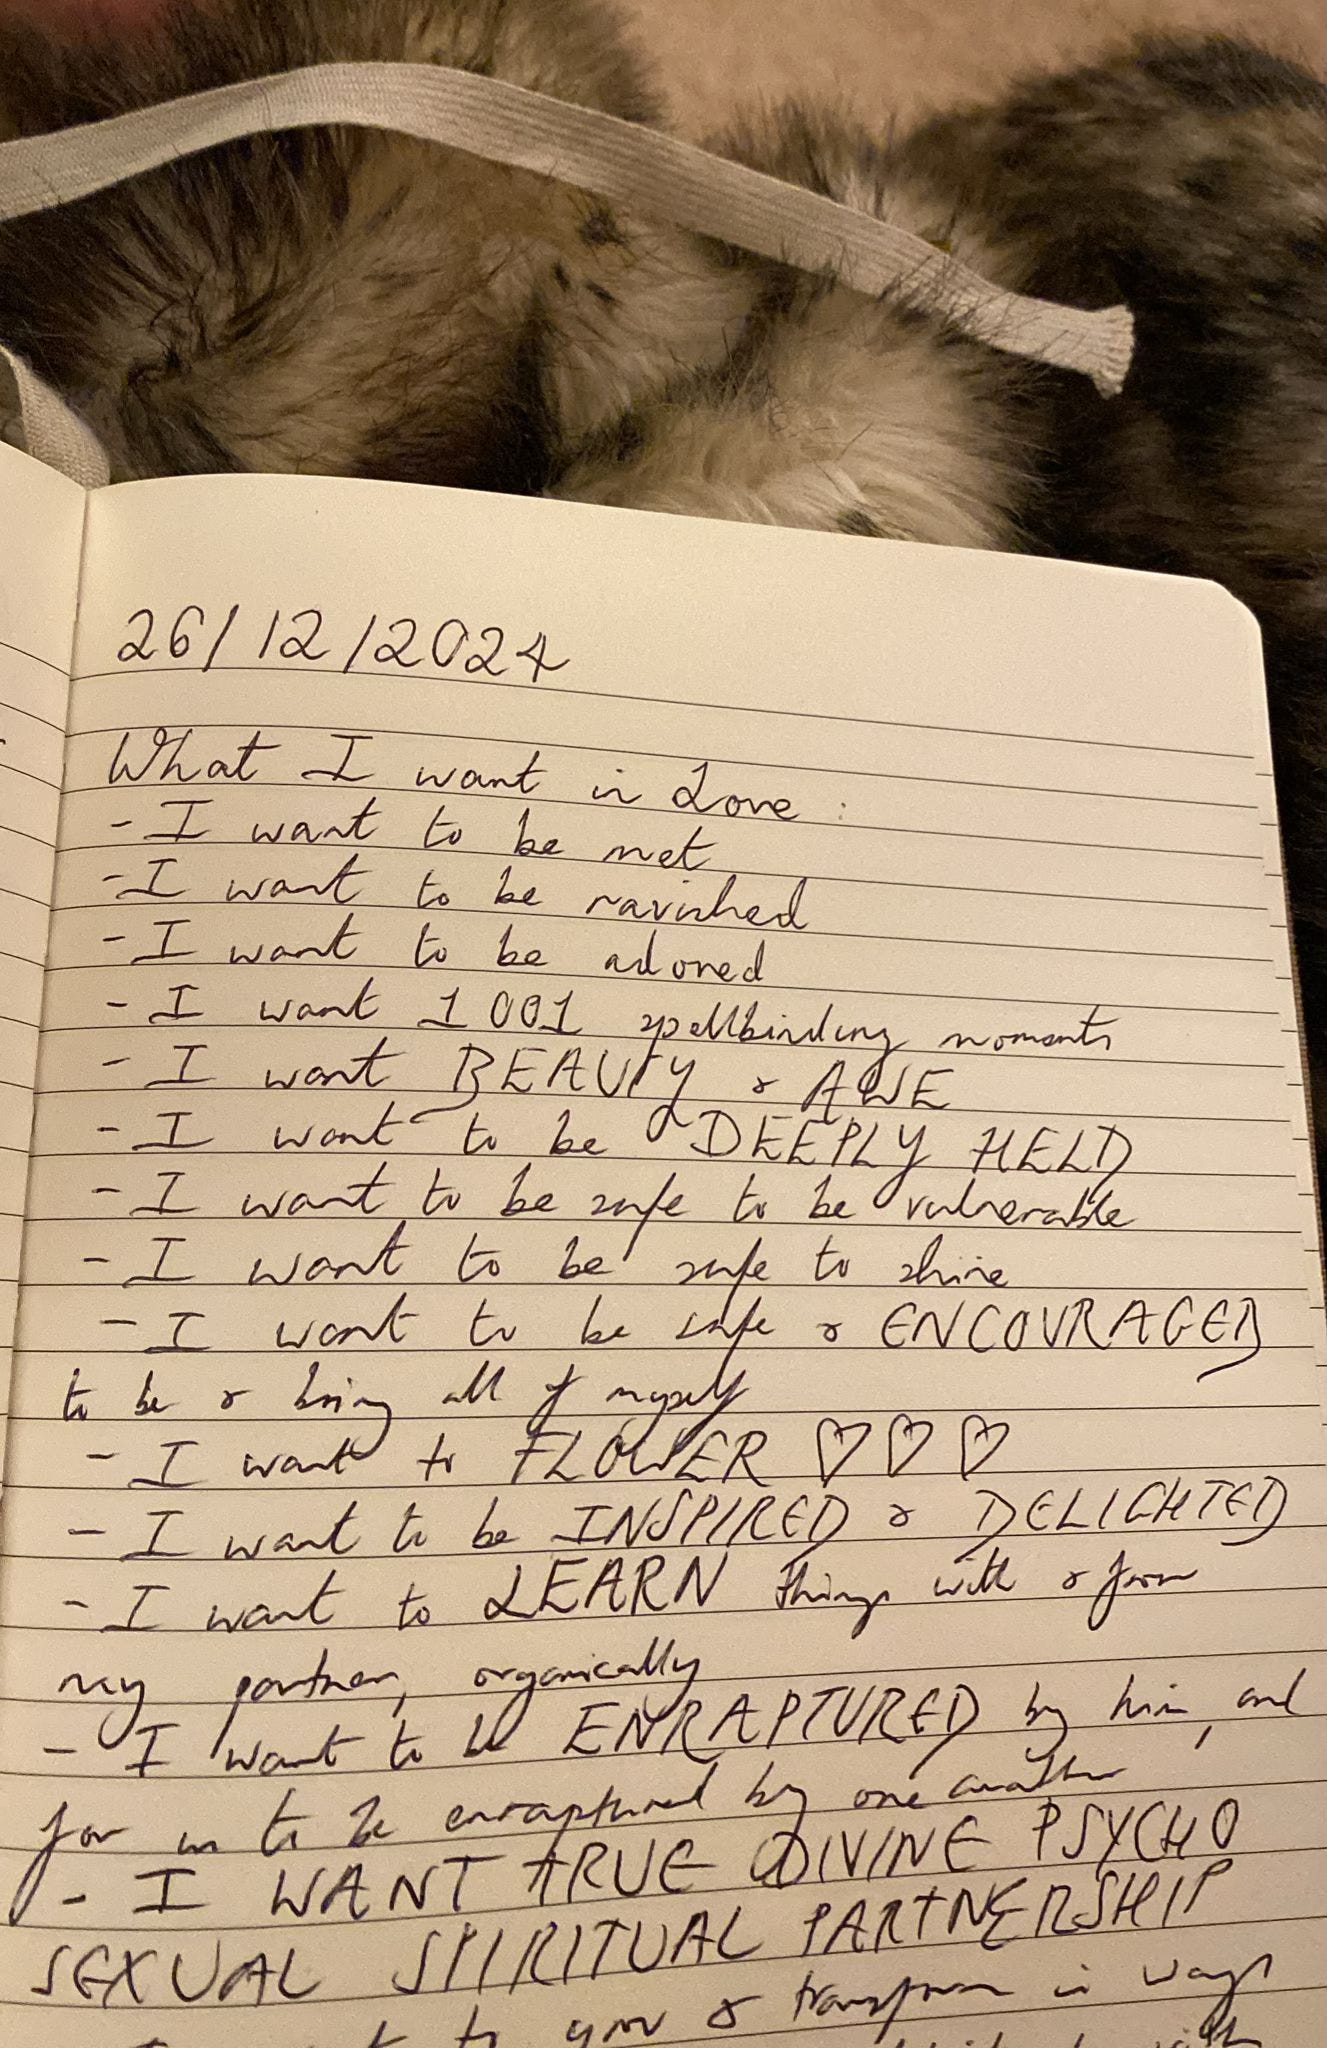 26/12/2024
What I want in Love :
- I want to be met
- I want to be ravished
- I want to be adored
- I want 1001 spellbinding moments
- I want BEAUTY & AWE
- I want to be DEEPLY HELD
- I want to be safe to be vulnerable
- I want to be safe to shine
- I want to be safe & ENCOURAGED
to be & bring all of myself
- I want to FLOWER ♡ ♡ ♡
- I want to be INSPIRED & DELIGHTED
- I want to LEARN things with & from
my partner, organically
- I want to be ENRAPTURED by him, and
for us to be enraptured by one another
- I WANT TRUE DIVINE PSYCHO
SEXUAL SPIRITUAL PARTNERSHIP
to & transform in ways
with